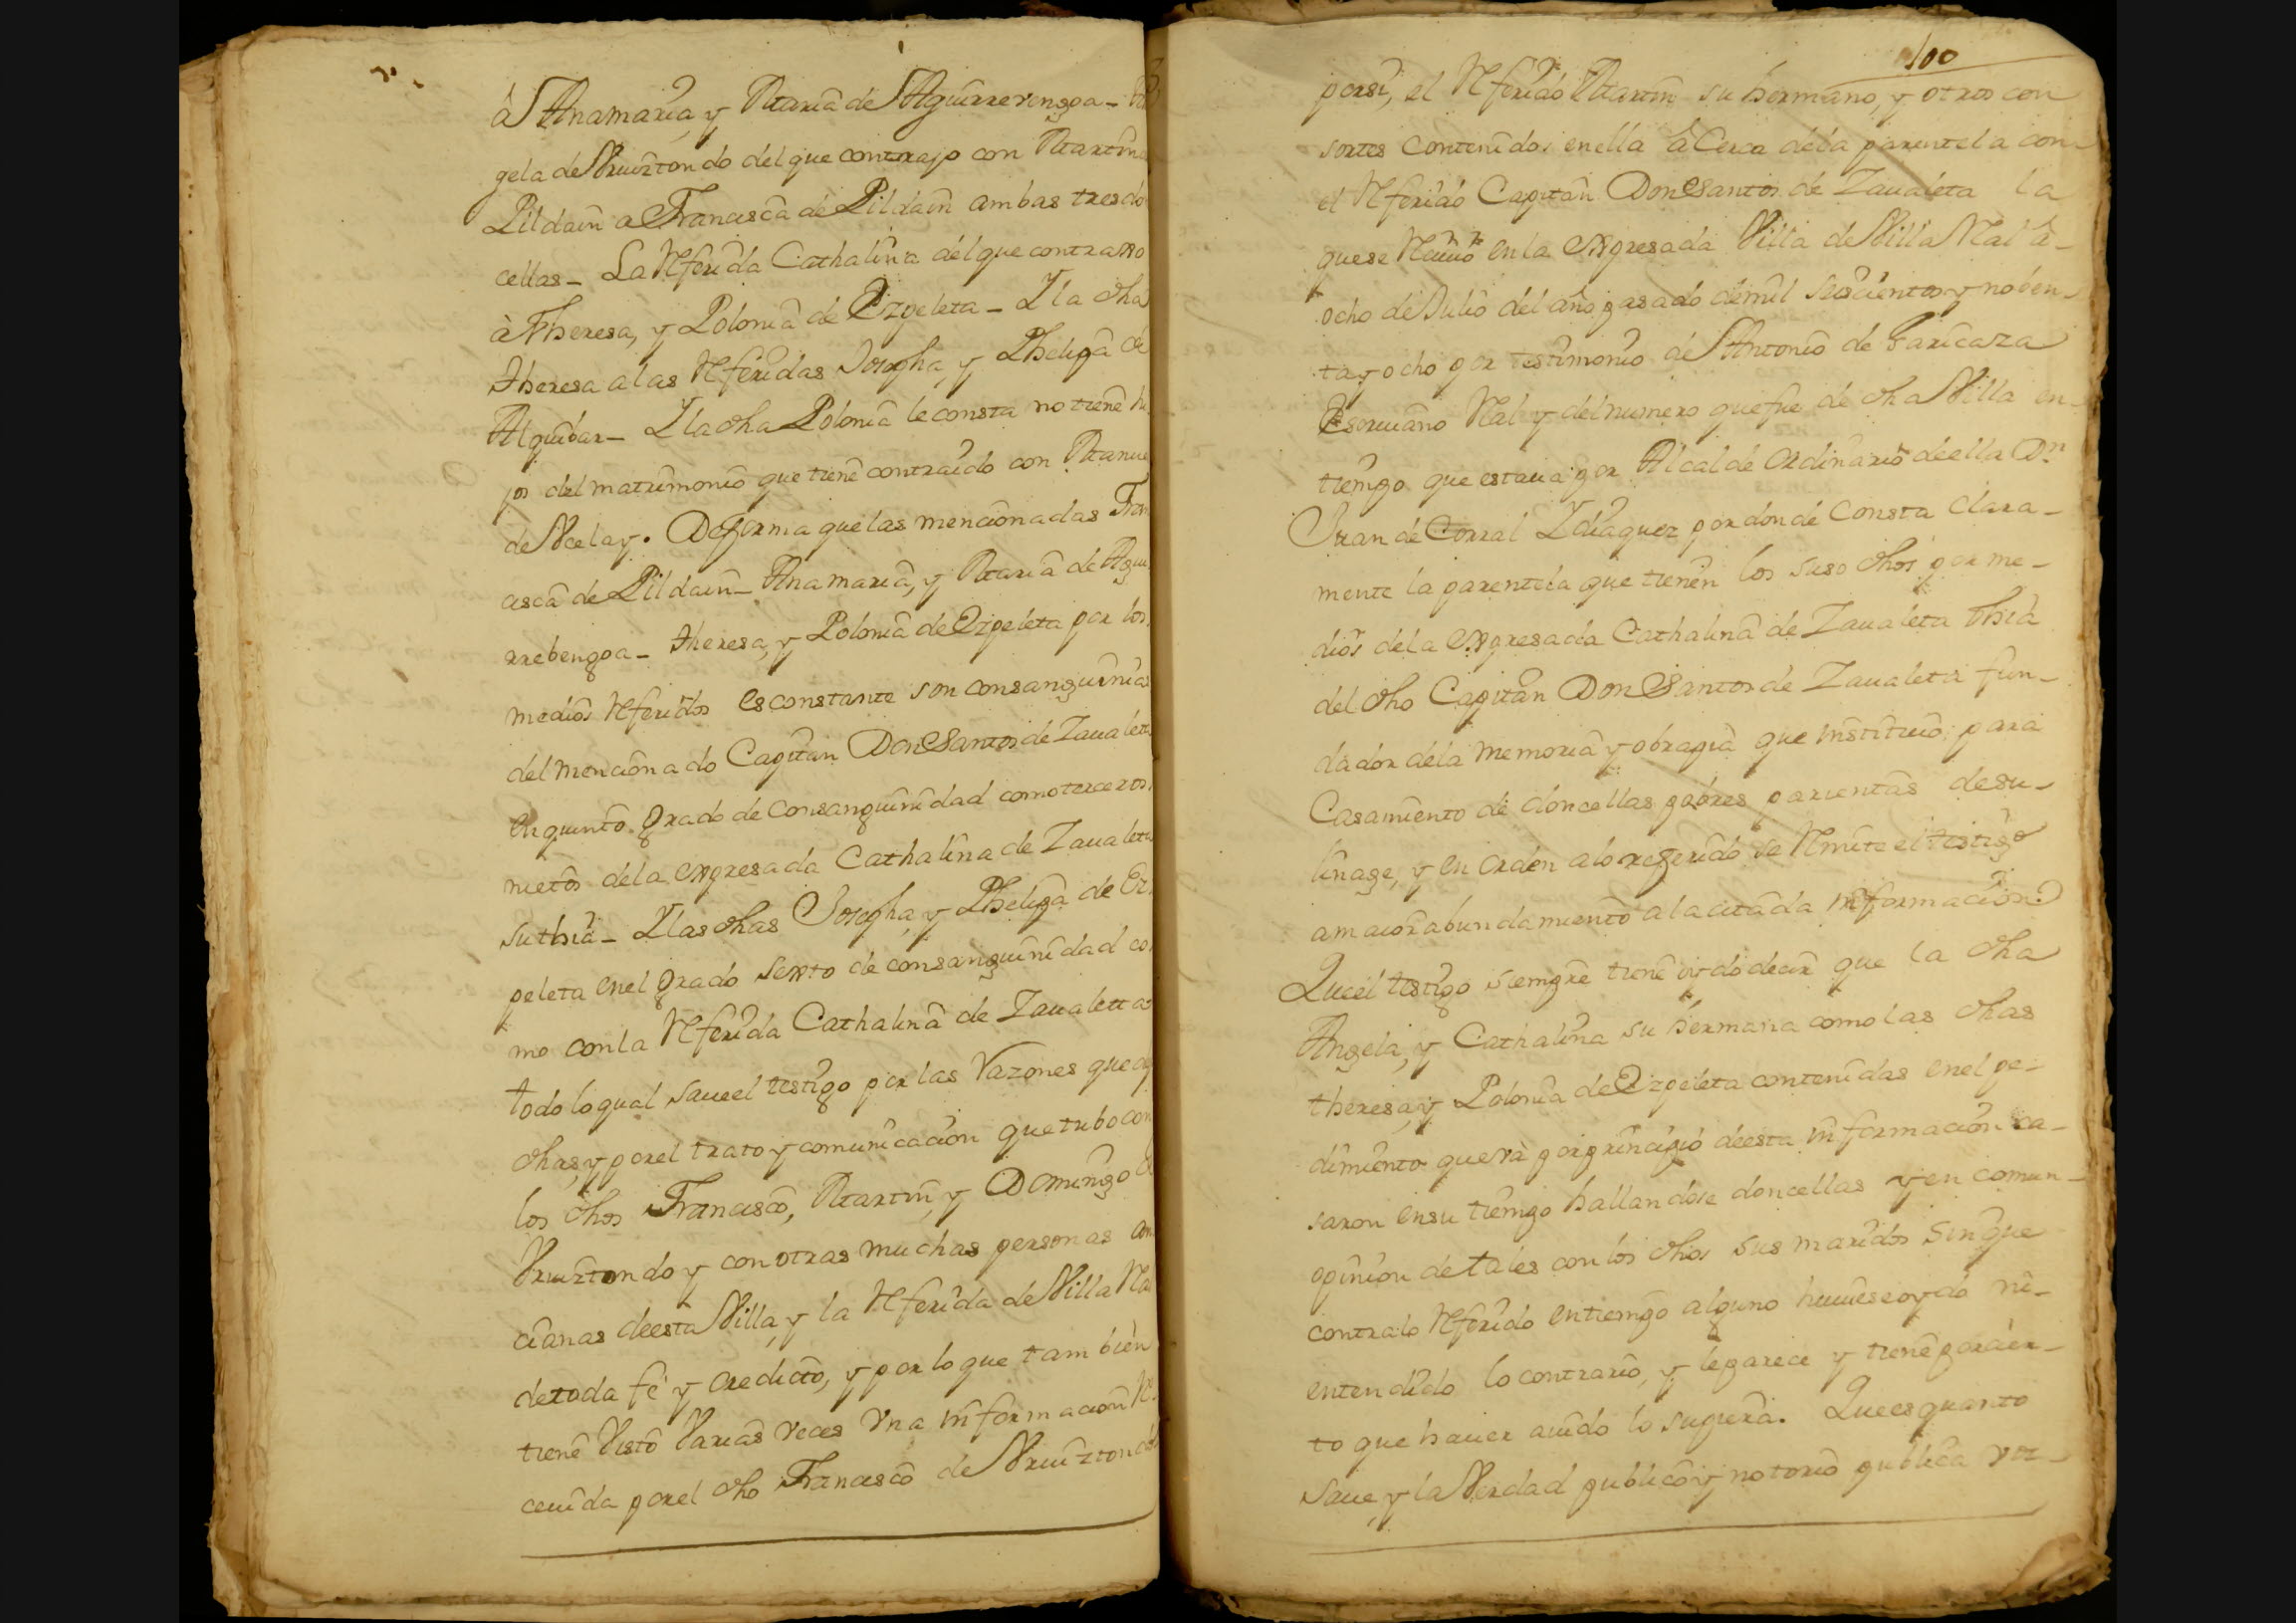 à Anamaria, y Maria de Aguirrevengoa -
gela de Vruiztondo del que contrajo con Martin
Pildain a Francisca de Pildain ambas tres don
cellas - La Rferida Cathalina del que contraxo
à Theresa, y Polonia de Ezpeleta - Y la dha
Theresa a las Rferidas Josepha, y Phelipa de
Alquibar - Y la dha Polonia le consta no tiene hi
jos del matrimonio que tiene contraido con Manue
de Vcelay. De forma que las mencionadas Fran
cisca de Pildain - Anamaria, y Maria de Agui
rrebengoa - Theresa, y Polonia de Ezpeleta por los
medios Rferidos es constante son consanguinias
del mencionado Capitan Don Santos de Zaualeta
en quinto grado de consanguinidad como terceros
nietos de la expresada Cathalina de Zaualeta
su thia - Y las dhas Josepha, y Phelipa de Ez
peleta en el grado sexto de consanguinidad co
mo con la Rferida Cathalina de Zaualetta
todo lo qual saue el testigo por las razones que
dhas, y por el trato y comunicacion que tubo con
los dhos Francisco, Martin, y Domingo
Vruiztondo y con otras muchas personas an
cianas de esta Villa, y la Rferida de Villa Rl
de toda fe y credicto, y por lo que tambien
tiene visto varias veces vna informacion Re
ceuida por el dho Francisco de Vruiztondo
100
por si, el Rferido Martin su hermano, y otros con
sortes contenidos en ella à cerca de la parentela con
el Rferido Capitan Don Santos de Zaualeta la
que se Rciuio en la expresada Villa de Villa Rl à
ocho de Julio del año pasado de mil seiscientos y noben-
ta y ocho por testimonio de Antonio de Garicaza
Escriuano Rl y del numero que fue de dha Villa en
tiempo que estaua por Alcalde ordinario de ella Dn
Juan de Corral Ydiaquez por donde consta clara-
mente la parentela que tienen los suso dhos por me-
dios de la expresada Cathalina de Zaualeta thia
del dho Capitan Don Santos de Zaualeta fun-
dador de la memoria y obra pia que instituio para
Casamiento de doncellas pobres parientas de su-
linage, y en orden a lo referido se Rmite el testigo
a maior abundamiento a la citada informacion
Que el testigo siempre tiene oydo decir que la dha
Angela, y Cathalina su hermana como las dhas
theresa, y Polonia de Ezpeleta contenidas en el pe-
dimiento que và por principio de esta informacion ca-
saron en su tiempo hallandose doncellas y en comun-
opinion de tales con los dhos sus maridos sin que
contra lo Rferido en tiempo alguno huuiese oydo ni-
entendido lo contrario, y le parece y tiene por cier-
to que hauer auido lo supiera. Que es quanto
saue, y la Verdad publico y notorio publica voz-